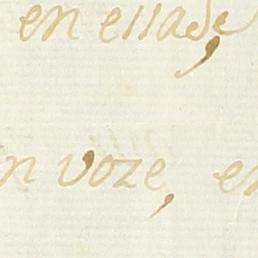 en ellade,
in voze, en